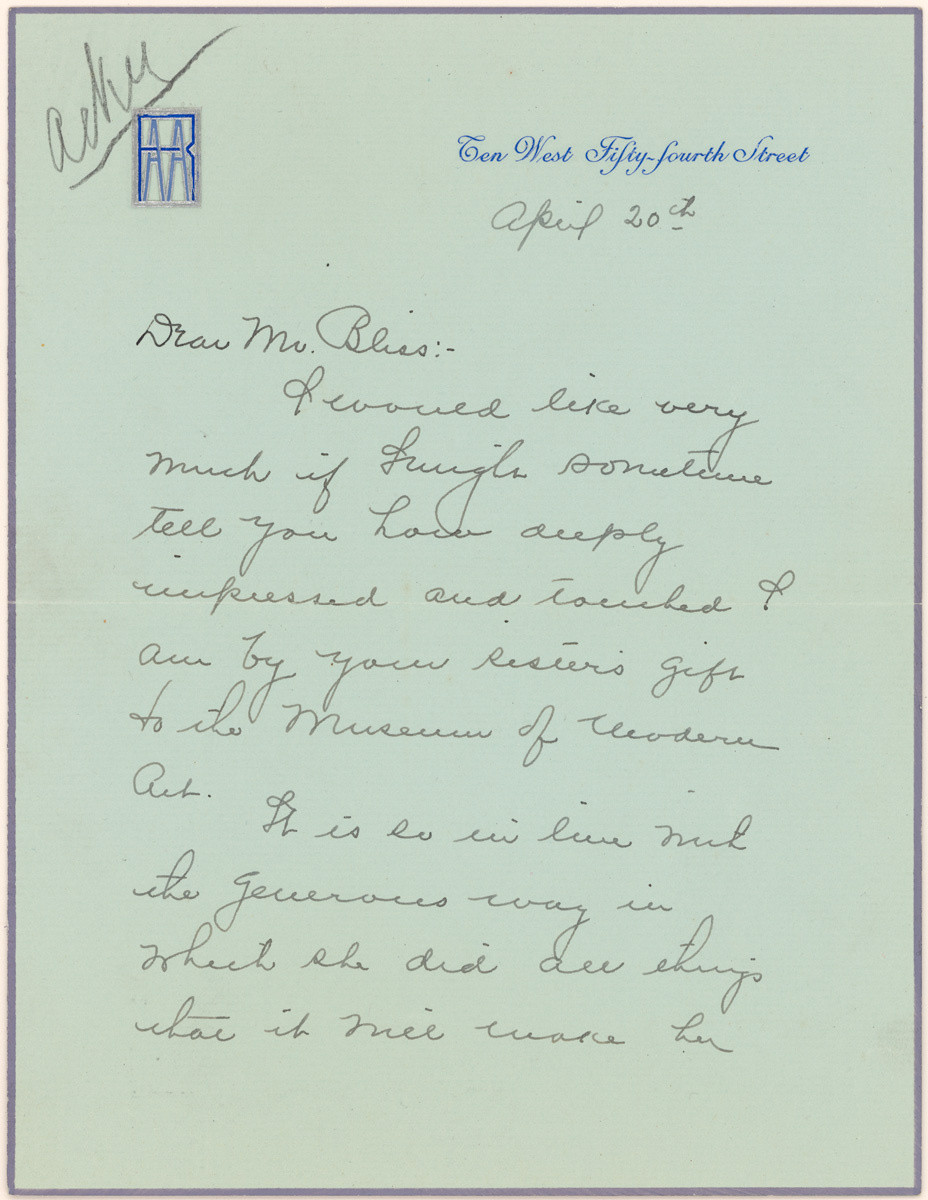 ackn
AAR
Ten West Fifty-fourth Street
April 20th
Dear Mr. Bliss:-
I would like very
much if I might sometime
tell you how deeply
impressed and touched I
am by your sister's gift
to the Museum of Modern
Art.
It is so in line with
the generous way in
which she did all things
that it will make her